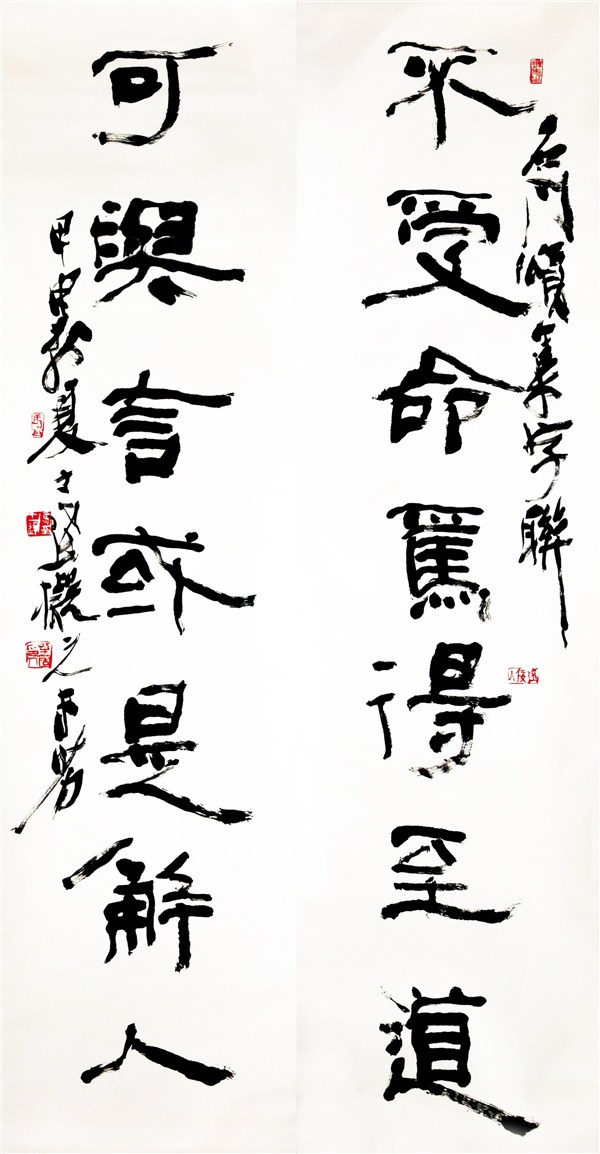 石門頌集字聯
不受命焉得至道
可與言或是解人
甲申夏之